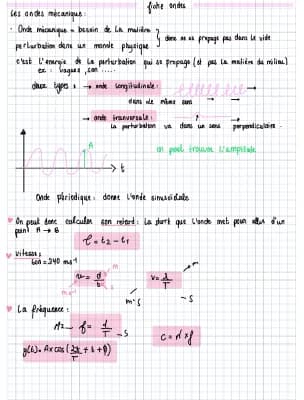 fiche ondes
Les ondes mécanique:
Onde mécanique = besoin de la matière
perturbation dans un monde physique
donc ne se propage pas dans le vide
c'est l'énergie de la perturbation qui se propage (et pas la matière du milieu)
ex: vagues, son .....
deux types: → onde longitudinale:
dans le même sens
→ onde transversale:
la perturbation va dans un sens perpendiculaire.
on peut trouver l'amplitude
A
t
Onde périodique: donne l'onde sinusoïdale
On peut donc calculer son retard: la durée que l'onde met pour aller d'un
point A → B
τ = t2 - t1
Vitesse:
son = 340 ms-1
v = d/t
m
s
ms-1
v = λ/T
m
m·s
s
La fréquence:
Hz
f = 1/T
s
c = λ × f
y(t) = A × cos(2π/T × t + φ)